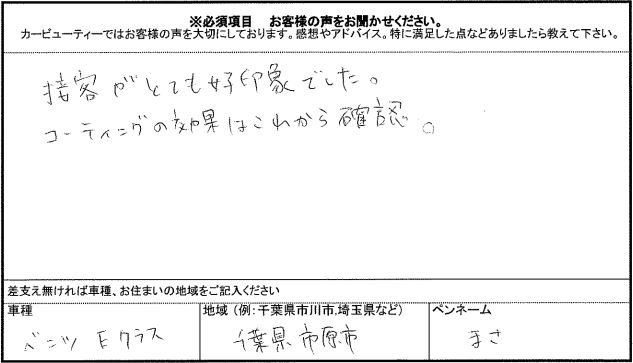 ※必須項目 お客様の声をお聞かせください。
カービューティーではお客様の声を大切にしております。感想やアドバイス。特に満足した点などありましたら教えて下さい。
接客がとても好印象でした。
コーティングの効果はこれから確認。
差支え無ければ車種、お住まいの地域をご記入ください
車種 地域（例：千葉県市川市、埼玉県など） ペンネーム
ベンツ Eクラス 千葉県市原市 まさ